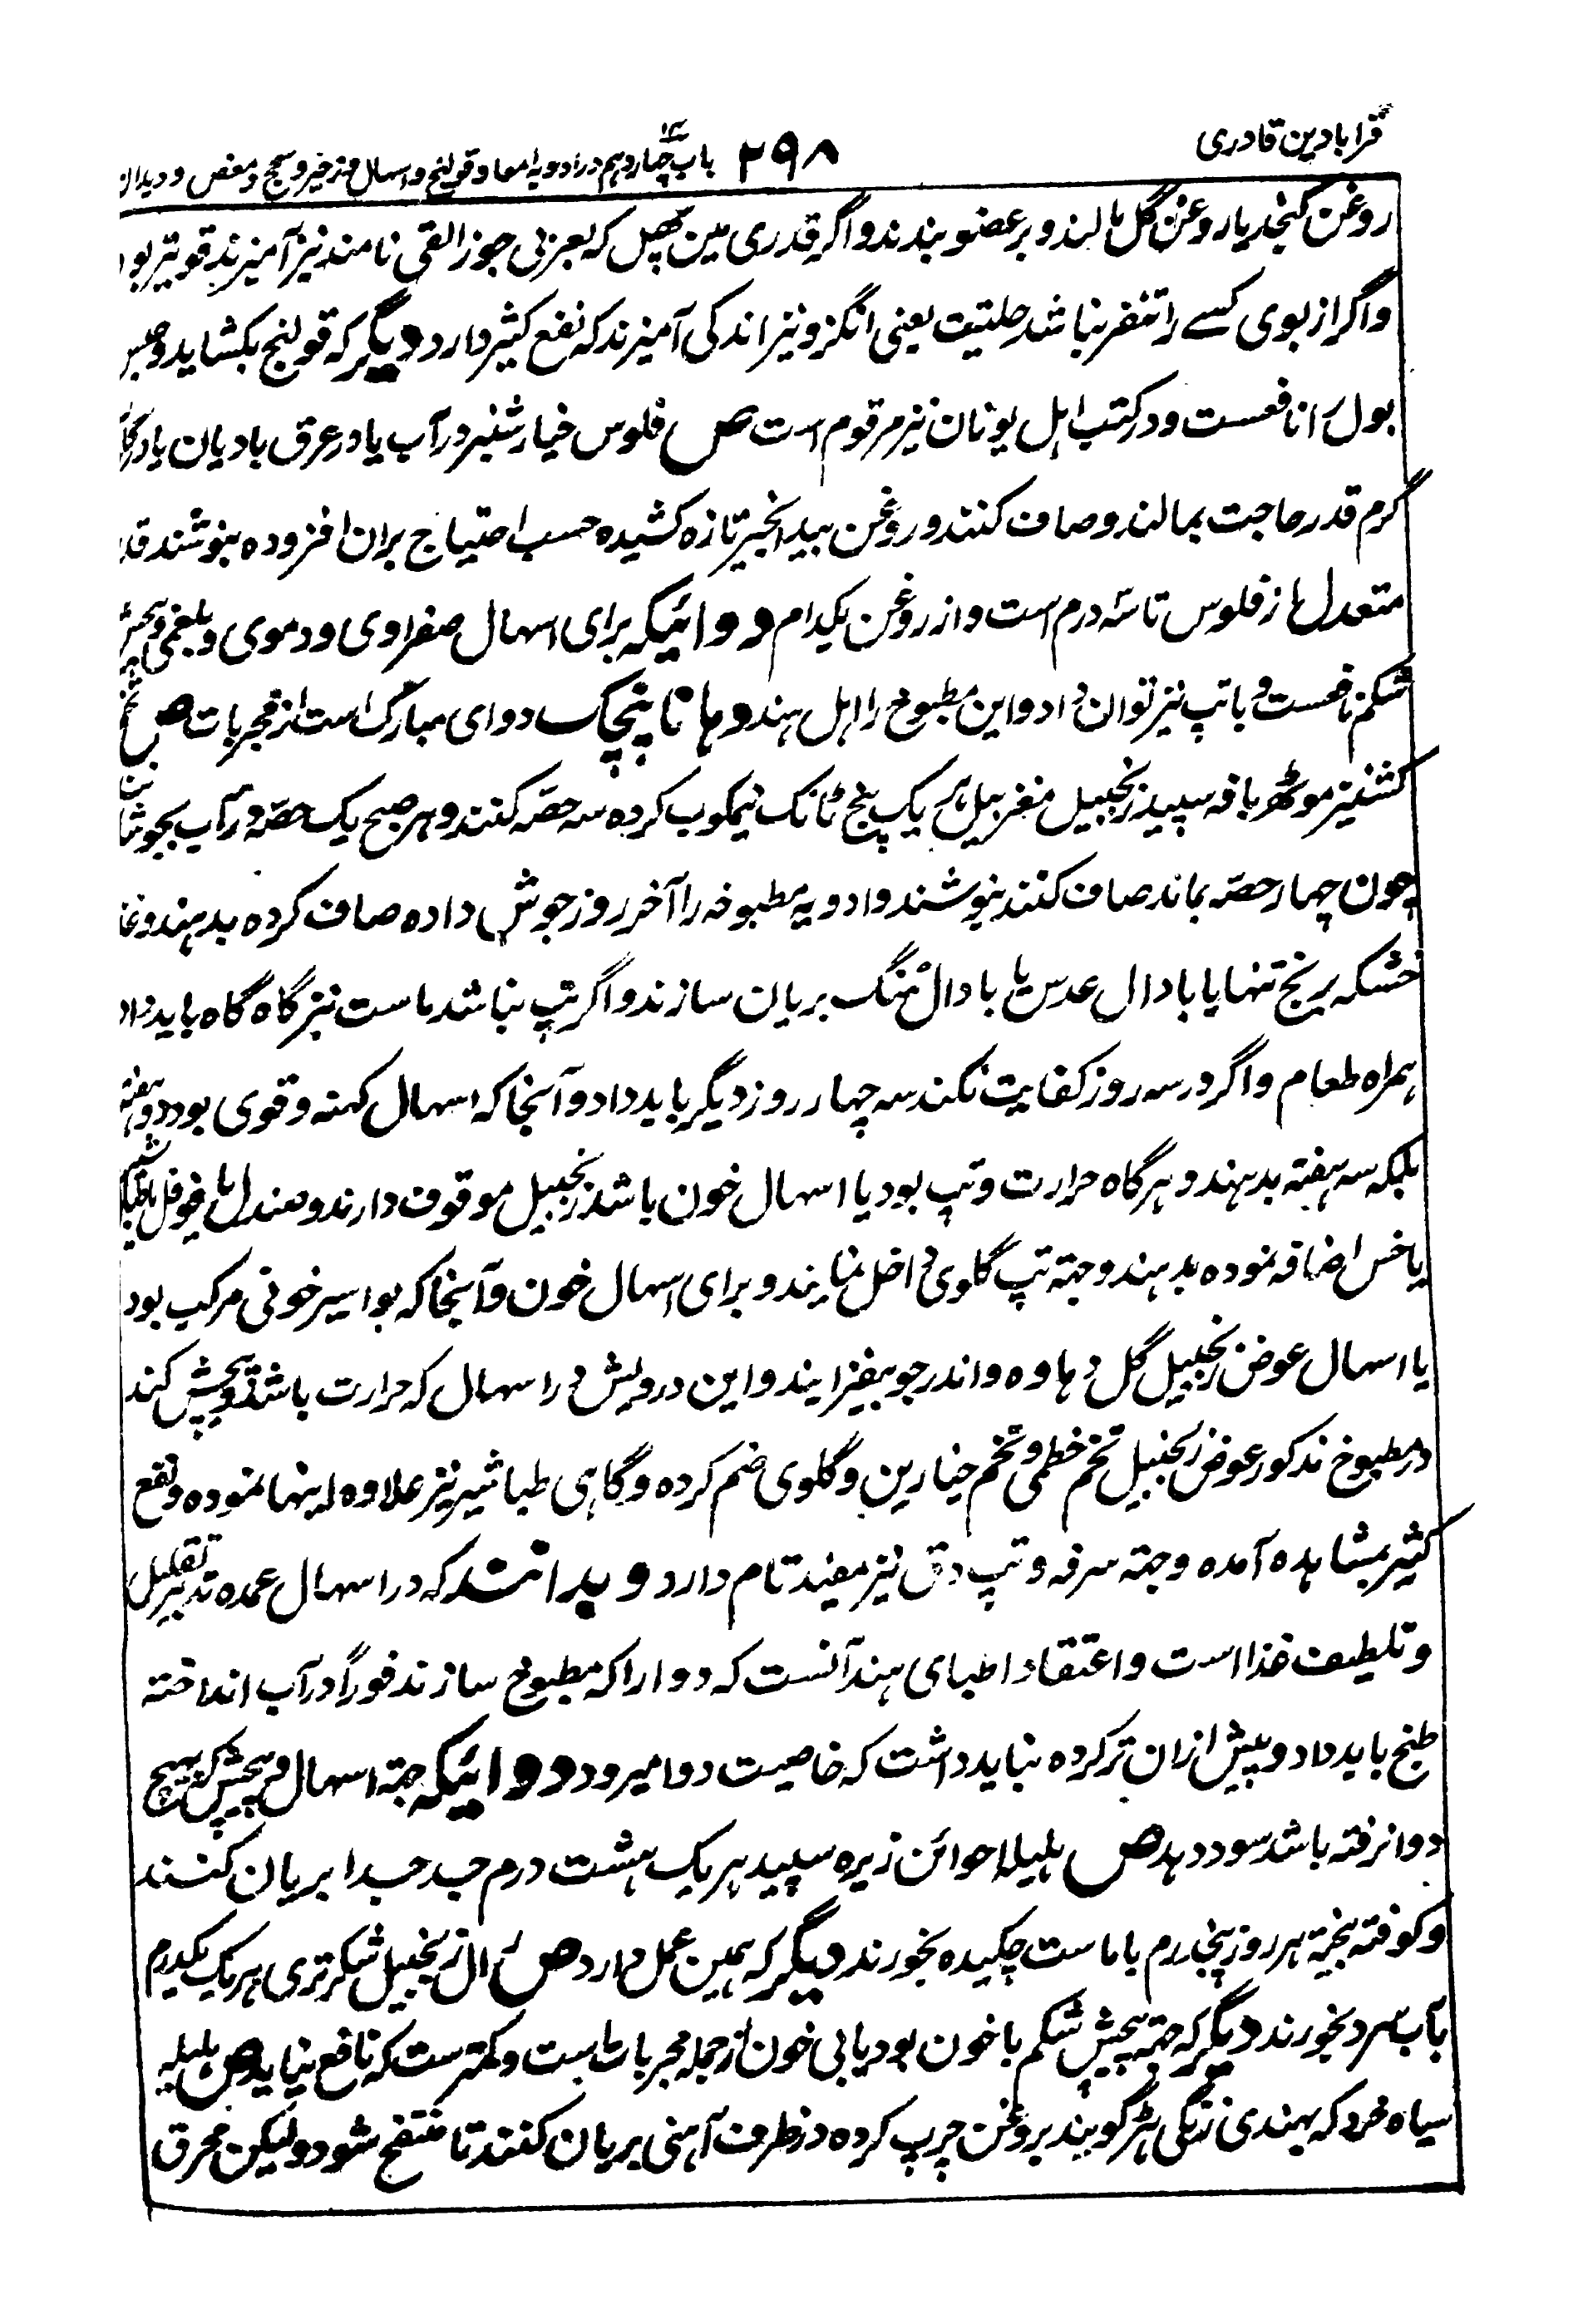 قرابادین قادری
۲۹۸
باب چهاردهم در ادویه امعا و قولنج و اسهال و زحیر و سحج و مغص و دیدان
روغن کنجد یا روغن گل بمالند و بر عضو بندند و اگر قدری مین پهل که بعربی جوز القی نامند نیز آمیزند قویتر بود
و اگر از بوی کسے را تنفر نباشد حلتیت یعنی انگزه نیز اندکی آمیزند که نفع کثیر دارد دیگر که قولنج بکشاید و حبس
بول را نافعست و در کتب اہل یونان نیز مرقوم است ص فلوس خیارشنبر در آب یا در عرق بادیان یا در
گرم قدر حاجت بمالند و صاف کنند و روغن بیدانجیر تازه کشیده حسب احتیاج بران افزوده بنوشند قدر
معتدل از فلوس تا سه درم است و از روغن یکدام دوائیکه برای اسهال صفراوی و دموی و بلغمی و پیچش
شکم نافعست و با تپ نیز توان داد و این مطبوخ را اہل ہند دہانا پنچک دوای مبارک است از مجربات ص تخم
کشنیز موٹھ بافه سپید زنجبیل مغز بیل ہر یک پنج ٹانک نیمکوب کرده سه حصّه کنند و ہر صبح یک حصّه در آب بجوشانند
چون چهار حصّه بماند صاف کنند بنوشند و ادویه مطبوخه را آخر روز جوش داده صاف کرده بدہند و غذا
خشکه برنج تنها یا با دال عدس یا با دال مُنگ بریان سازند و اگر تپ نباشد ماست نیز گاه گاه باید داد
ہمراه طعام و اگر در سه روز کفایت نکند سه چهار روز دیگر باید داد و آنجا که اسهال کهنه و قوی بود دو ہفته
بلکه سه ہفته بدہند و ہرگاه حرارت و تپ بود یا اسهال خون باشد زنجبیل موقوف دارند و صندل یا فوفل یا طباشیر
یا خس اضافه نموده بدہند و جهته تپ گلوی داخل نمایند و برای اسهال خون و آنجا که بواسیر خونی مرکب بود
با اسهال عوض زنجبیل گل دہاوه و اندرجو بیفزایند و این درویش در اسهال که حرارت باشد و پیچش کند
در مطبوخ مذکور عوض زنجبیل تخم خطمی و تخم خیارین و گلوی ضم کرده و گاہی طباشیر نیز علاوه اینها نموده و نفع
کثیر بمشاہده آمده و جهته سرفه و تپ دق نیز مفید تام دارد و بدانند که در اسهال عمده تدبیر تقلیل
و تلطیف غذا است و اعتقاد اطبای ہند آنست که دوا را که مطبوخ سازند فوراً در آب انداخته
طبخ باید داد و پیش ازان تر کرده نباید داشت که خاصیت دوا میرود دوائیکه جهته اسهال و پیچش که بهیچ
دوا نرفته باشد سود دہد ص ہلیله اجوائن زیره سپید ہر یک ہشت درم جدا جدا بریان کنند
و کوفته بیخته ہر روز پنجدرم با ماست چکیده بخورند دیگر که ہمین عمل دارد ص رال زنجبیل شکر تری ہر یک یکدرم
بآب سرد بخورند دیگر که جهته پیچش شکم با خون بود یا بی خون از جمله مجرباتست و کمترست که نافع نیاید ص ہلیله
سیاه خرد که بهندی زنگی ہڑ گویند بروغن چرپ کرده در ظرف آہنی بریان کنند تا منتفخ شود و لیکن محرق